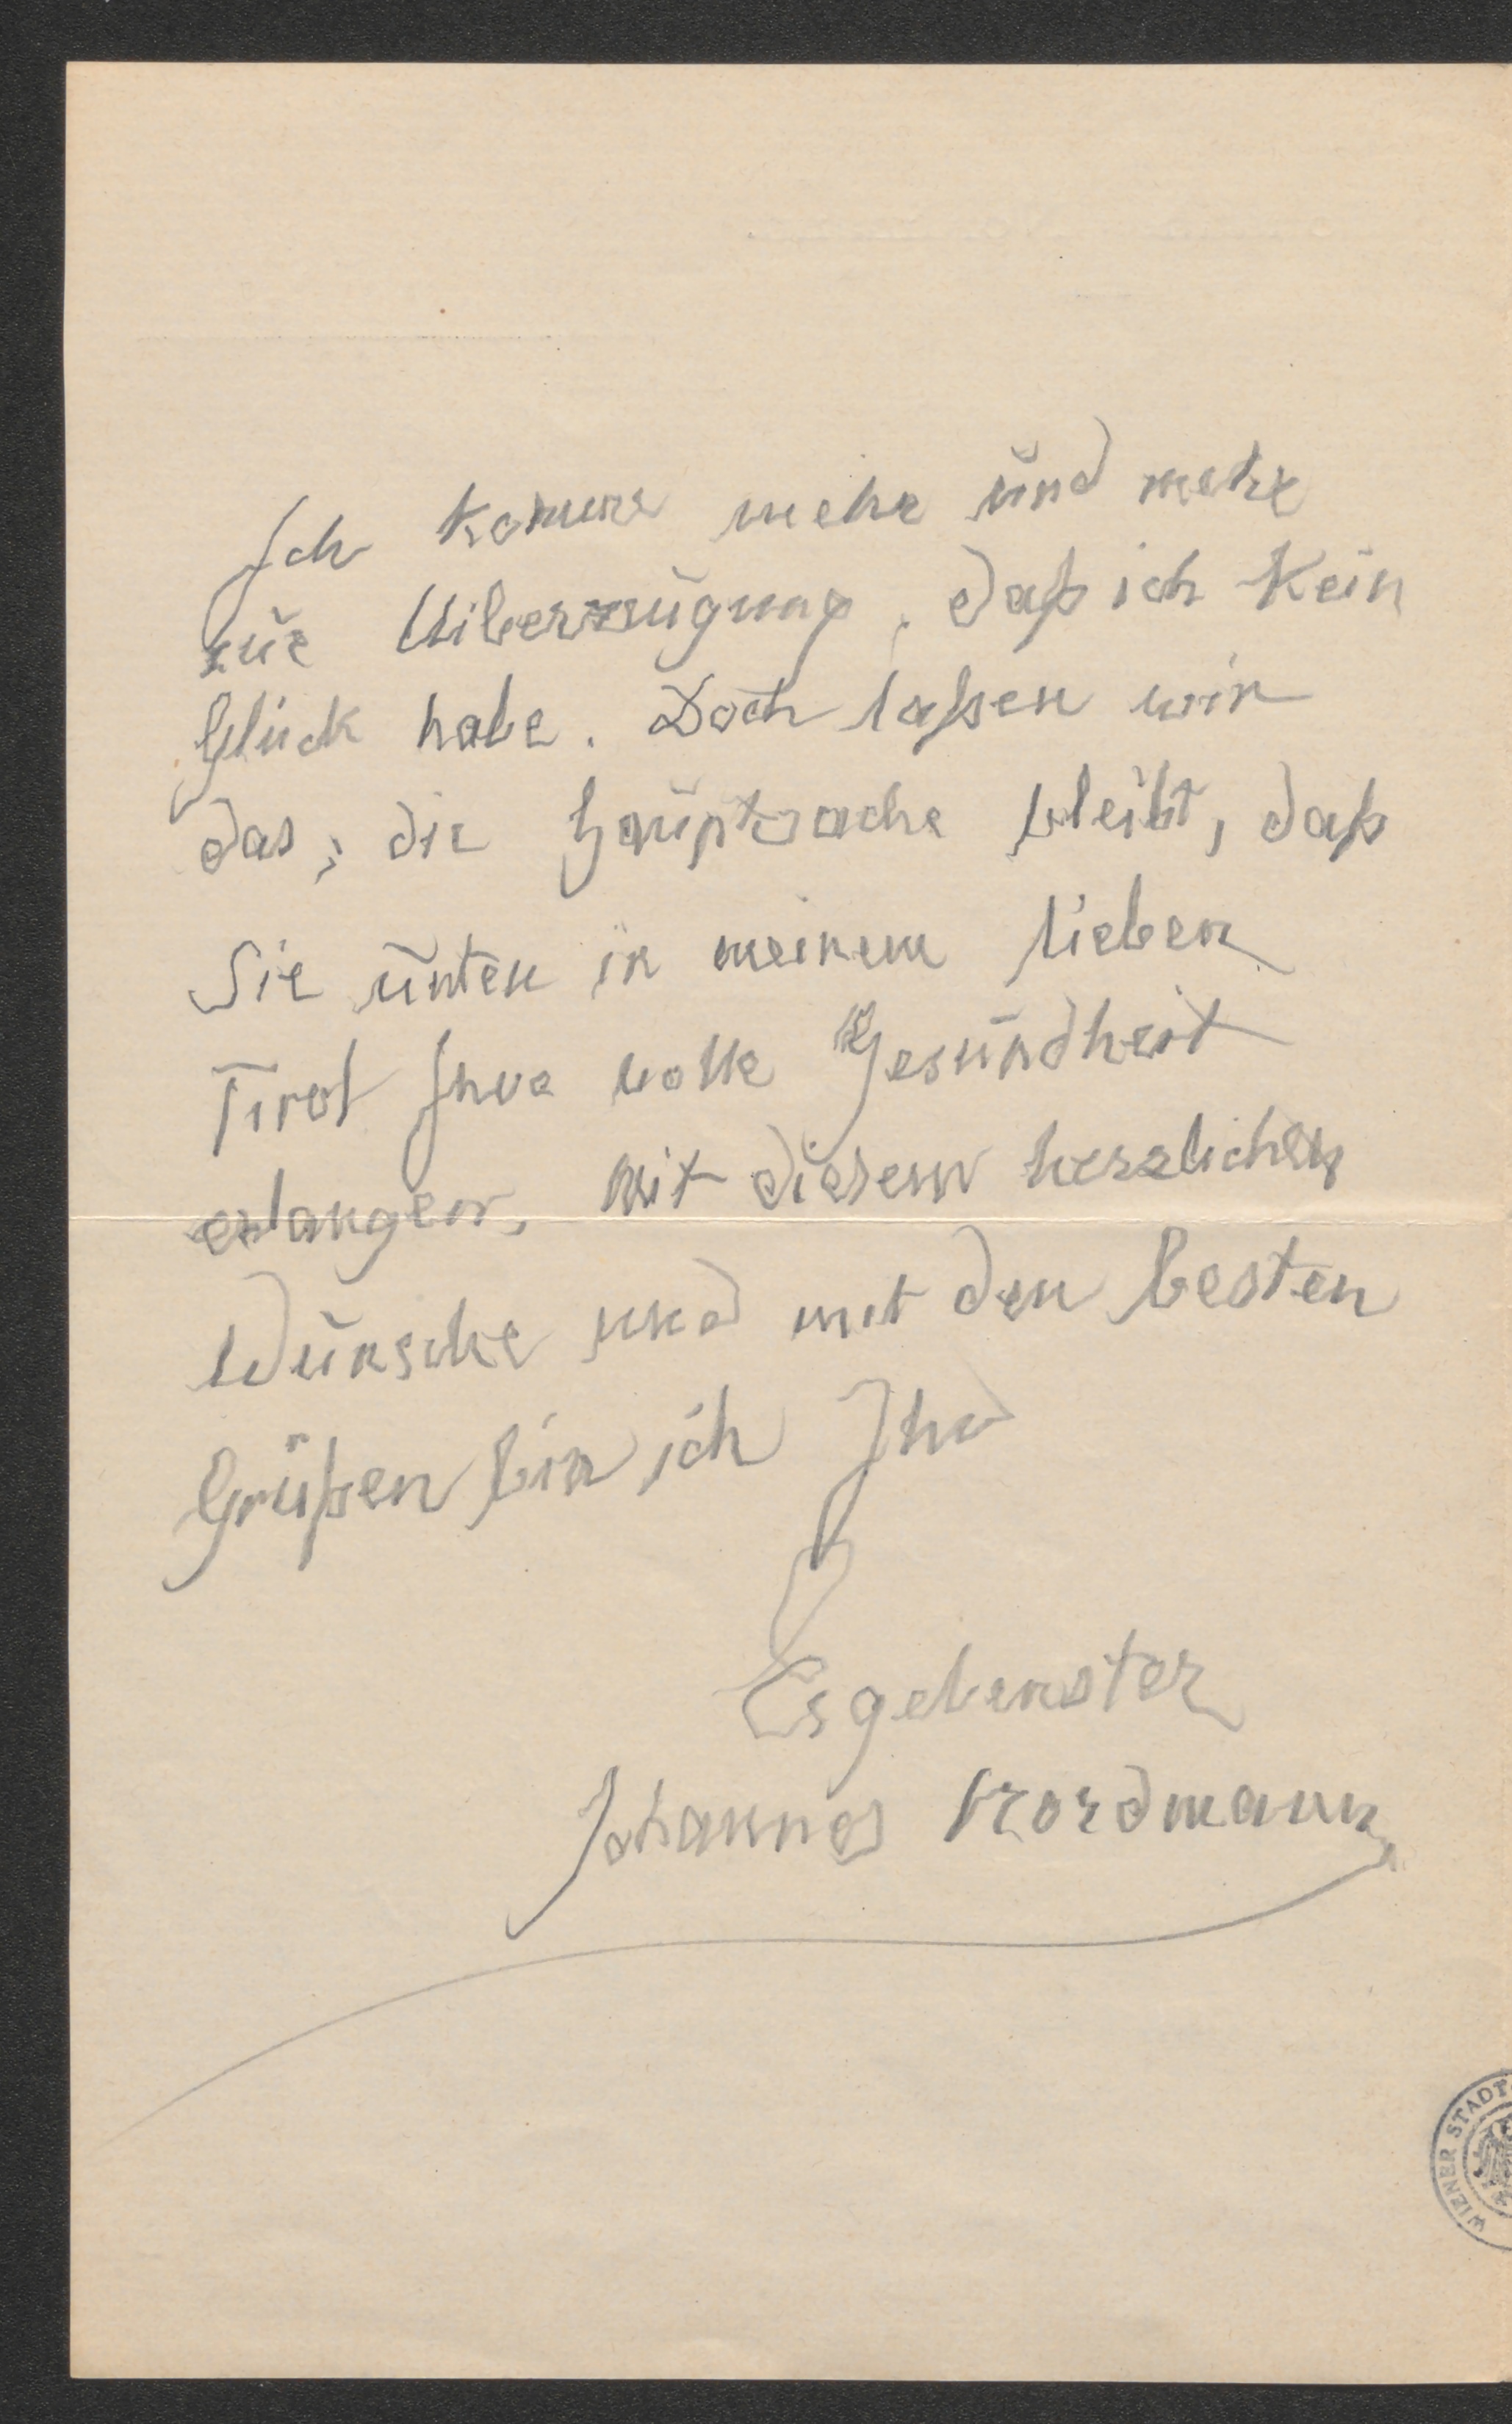 Ich komme mehr und mehr
zur Uiberzeugung, daß ich kein
Glück habe. Doch laßen wir
das; die Hauptsache bleibt, daß
Sie unten in meinem lieben
Tirol Ihre volle Gesundheit
erlangen. Mit diesem herzlichen
Wunsche und mit den besten
Grüßen bin ich Ihr
Ergebenster
Johannes Nordmann
WIENER STADT